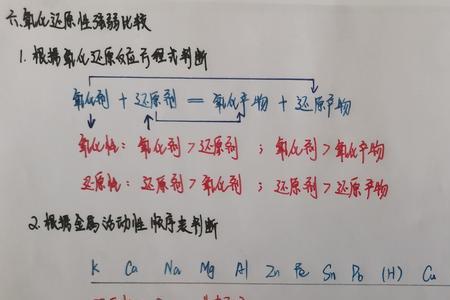 六.氧化还原性强弱比较
1.根据氧化还原反应方程式判断
氧化剂 + 还原剂 = 氧化产物 + 还原产物
氧化性：氧化剂 > 还原剂 ；氧化剂 > 氧化产物
还原性：还原剂 > 氧化剂 ；还原剂 > 还原产物
2.根据金属活动性顺序表判断
K Ca Na Mg Al Zn Fe Sn Pb (H) Cu